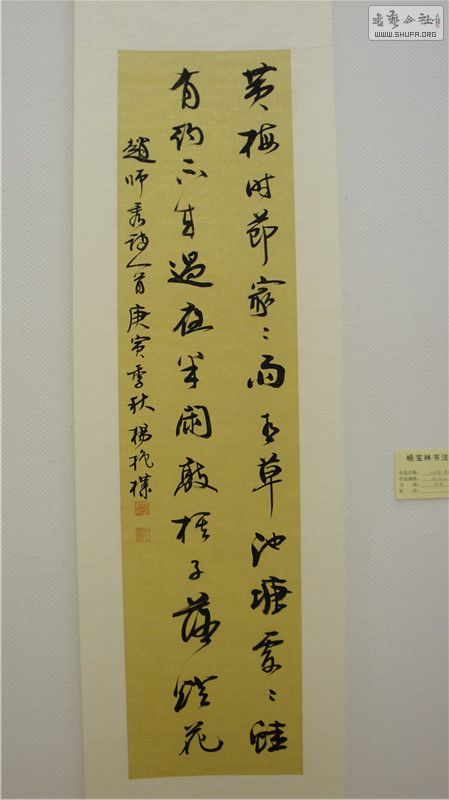 黄梅时节家〻雨青草池塘处〻蛙
有约不来过夜半闲敲棋子落灯花
趙师秀诗一首庚寅季秋楊抱樸
书艺公社
WWW.SHUFA.ORG
杨宝林书法